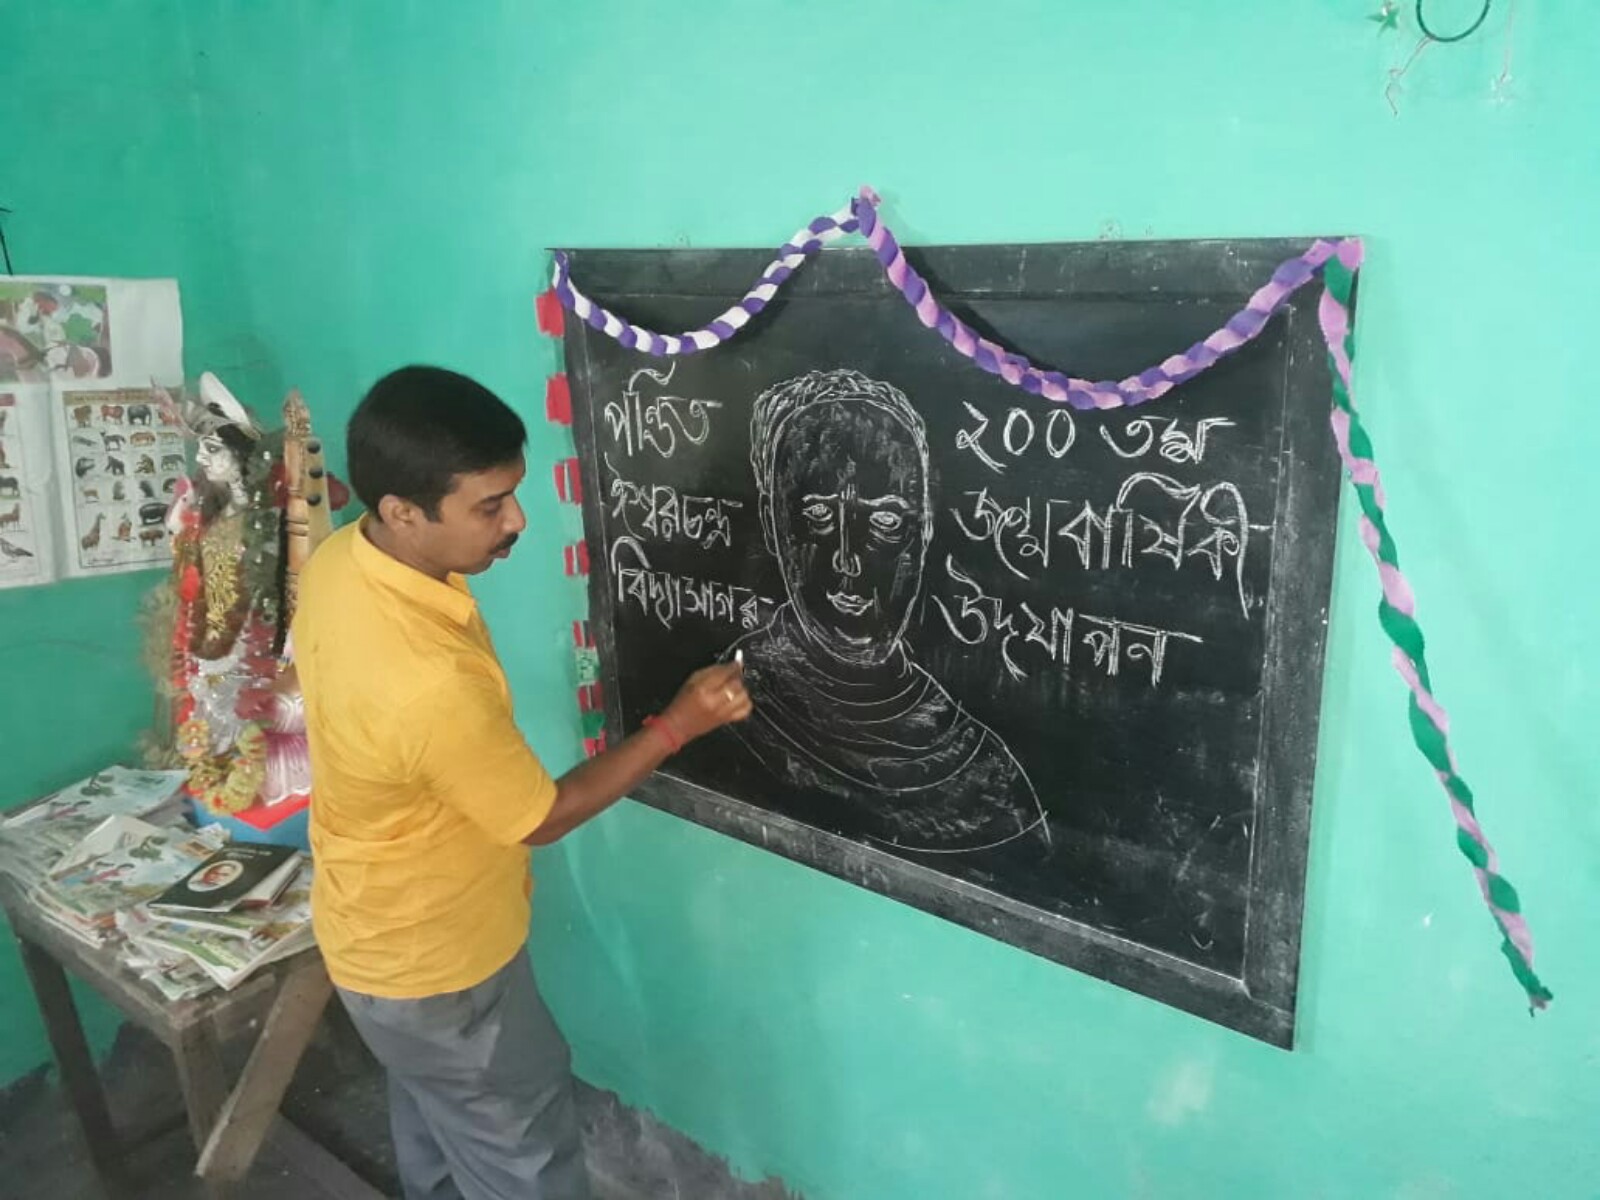 পন্ডিত
ঈশ্বরচন্দ্র
বিদ্যাসাগর
২০০ তম
জন্মবার্ষিকী
উদ্‌যাপন